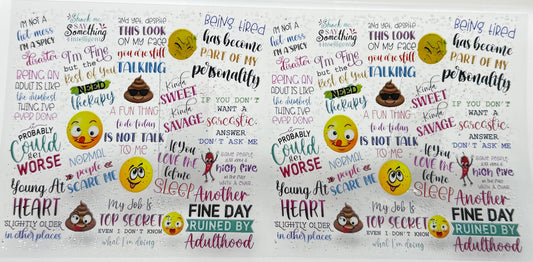 I'M NOT A
hot mess
I'M A SPICY
disaster
Shock me
SAY
Something
intelligent
and yet, despite
THIS LOOK
ON MY FACE
you are still
TALKING
BEING TIRED
has become
PART OF MY
personality
I'm Fine
but the
Rest of you
NEED
therapy
BEING AN
ADULT IS LIKE
the dumbest
THING I'VE
EVER DONE
Kinda
SWEET
Kinda
SAVAGE
IF YOU DON'T
WANT A
sarcastic
ANSWER
DON'T ASK ME
A FUN THING
to do today
IS NOT TALK
TO ME
PROBABLY
Could
Get
WORSE
NORMAL
people
SCARE ME
If You
LOVE ME
let me
SLEEP
SOME PEOPLE
JUST NEED A
high five
IN THE FACE
WITH A CHAIR
Young At
HEART
SLIGHTLY OLDER
in other places
My Job Is
TOP SECRET
EVEN I DON'T KNOW
what I'm doing
Another
FINE DAY
RUINED BY
Adulthood
I'M NOT A
hot mess
I'M A SPICY
disaster
Shock me
SAY
Something
intelligent
and yet, despite
THIS LOOK
ON MY FACE
you are still
TALKING
BEING TIRED
has become
PART OF MY
personality
I'm Fine
but the
Rest of you
NEED
therapy
BEING AN
ADULT IS LIKE
the dumbest
THING I'VE
EVER DONE
Kinda
SWEET
Kinda
SAVAGE
IF YOU DON'T
WANT A
sarcastic
ANSWER
DON'T ASK ME
A FUN THING
to do today
IS NOT TALK
TO ME
PROBABLY
Could
Get
WORSE
NORMAL
people
SCARE ME
If You
LOVE ME
let me
SLEEP
SOME PEOPLE
JUST NEED A
high five
IN THE FACE
WITH A CHAIR
Young At
HEART
SLIGHTLY OLDER
in other places
My Job Is
TOP SECRET
EVEN I DON'T KNOW
what I'm doing
Another
FINE DAY
RUINED BY
Adulthood